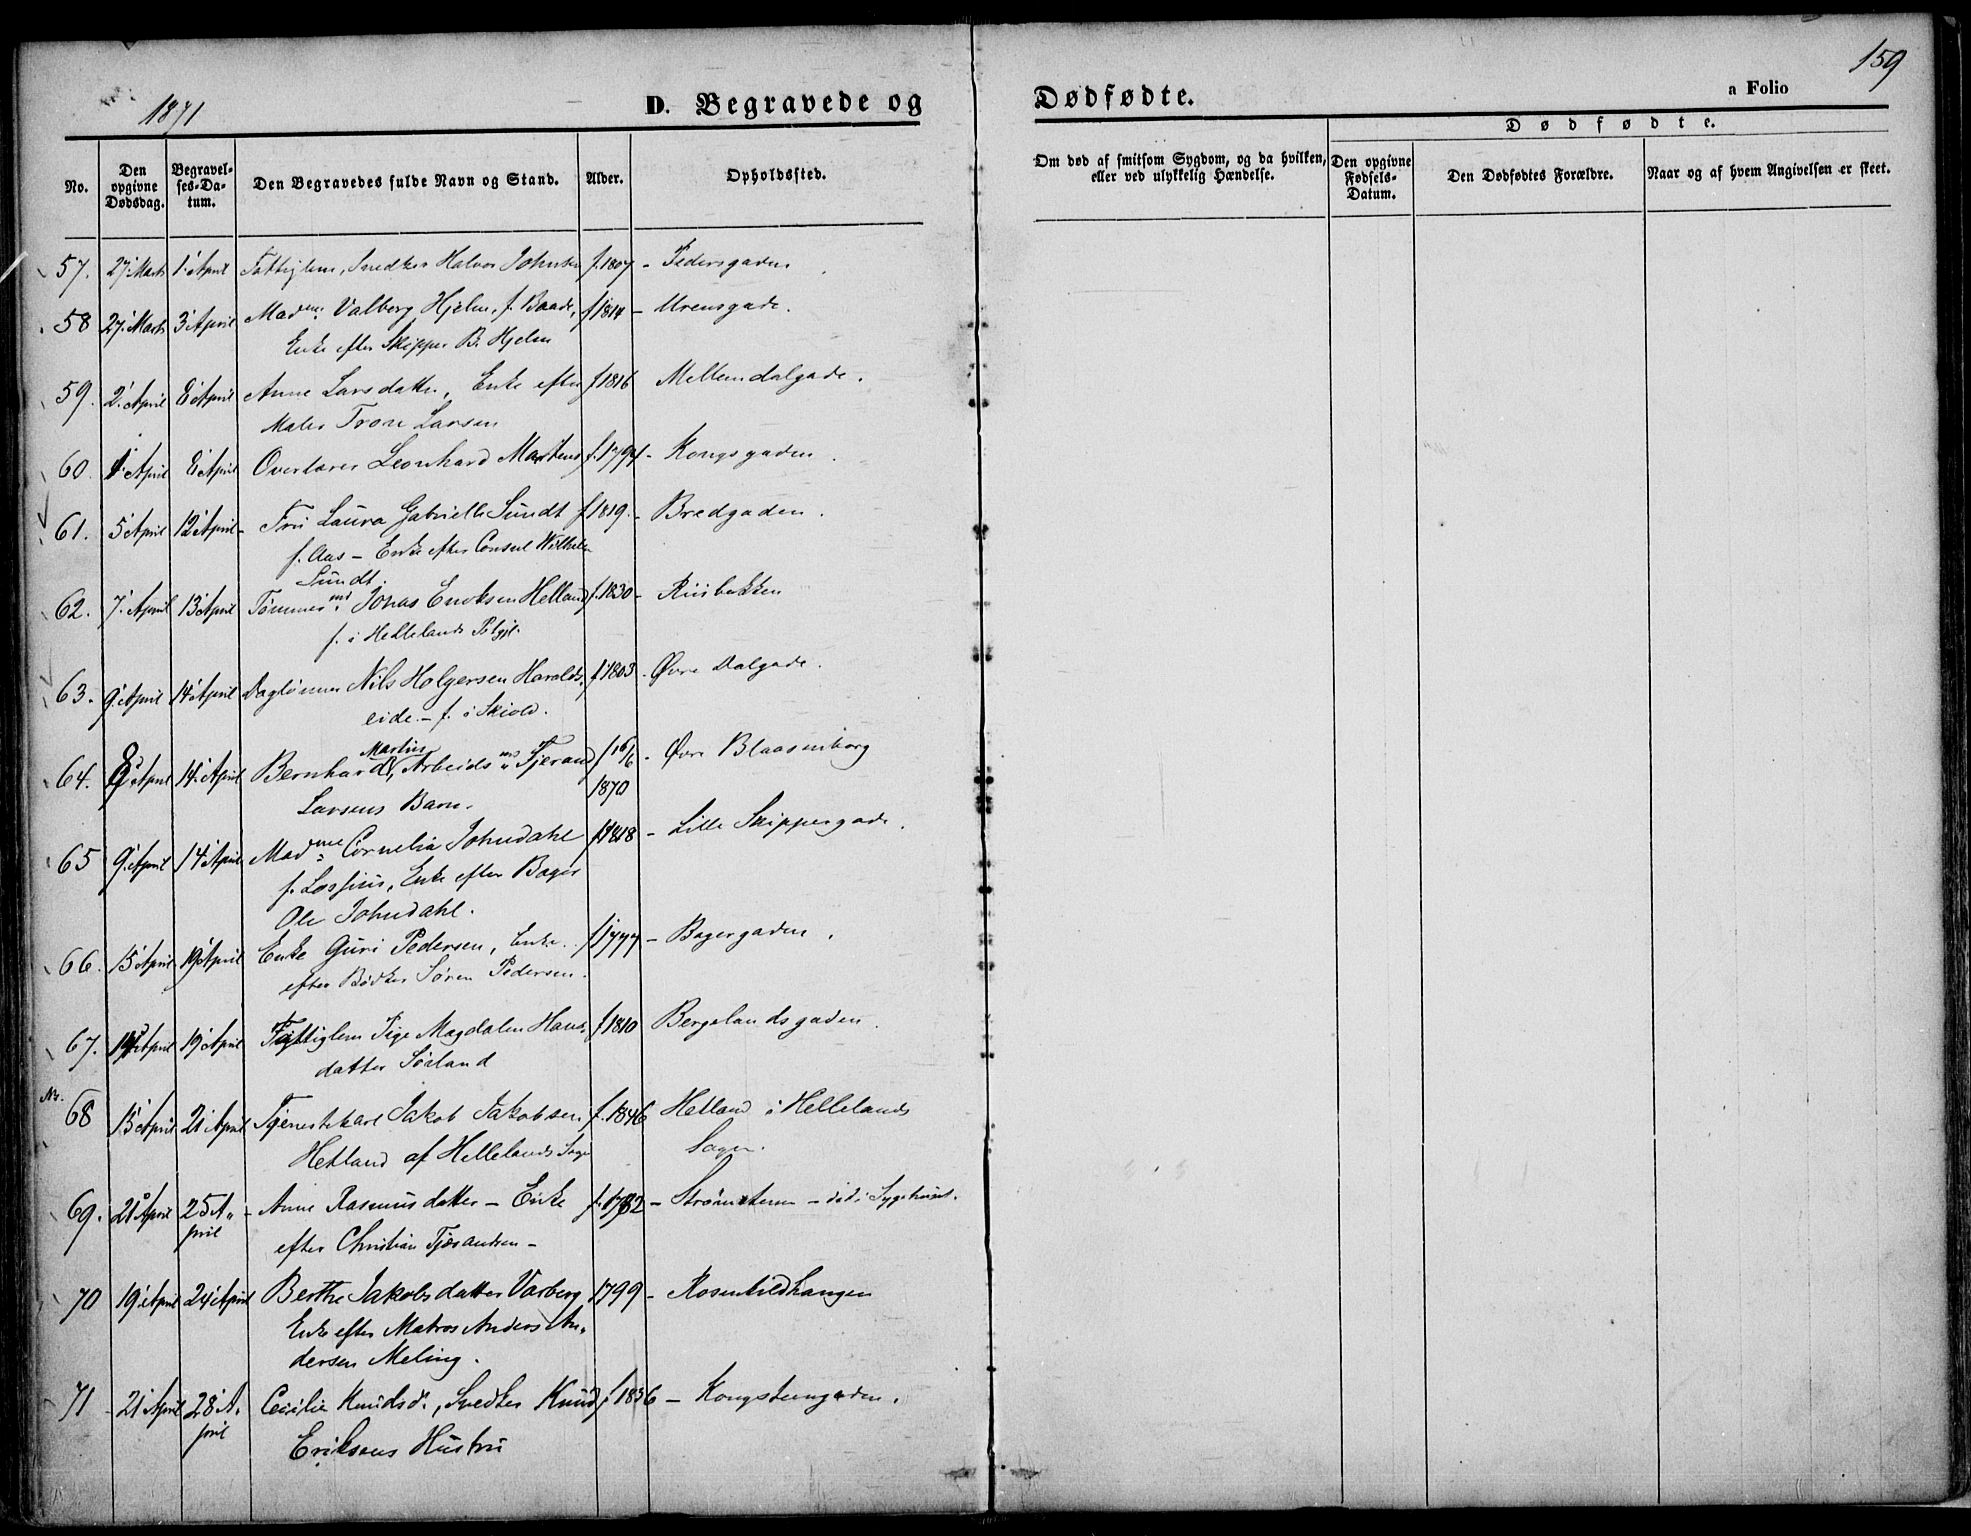 159
1871
D. Begravede og Dødfødte.
a Folio
No.
Den opgivne Dødsdag.
Begravelses-Datum.
Den Begravedes fulde Navn og Stand.
Alder.
Opholdssted.
Om død af smitsom Sygdom, og da hvilken, eller ved ulykkelig Hændelse.
Dødfødte.
Den opgivne Fødsels-Datum.
Den Dødfødtes Forældre.
Naar og af hvem Angivelsen er skeet.
57. 27' Marts 1' April Fattiglem, Snedker Halvor Johnsen f. 1807 - Pedersgaden
58 27' Marts 3' April Madme Valborg Hjelm, f. Baade, f 1814 - Urensgade.
Enke efter Skipper B. Hjelm
59. 2' April 8' April Anne Larsdatter, Enke efter f 1816 Mellemdalgade.
Maler Trone Larsen
60. 1' April 8' April Overlærer Leonhard Martens f. 1794 - Kongsgaden
61. 5' April 12' April - Fru Laura Gabrielle Sundt f 1819. - Bredgaden.
f. Aas - Enke efter Consul Wilhelm
Sundt.
62. 7' April 13' April Tømmermd Jonas Eriksen Helland f. 1830 - Riisbakken
f. i Hellelands Pstgjl.
63. 9' April 14' April Daglønner Nils Holgersen Haralds- f 1803. Øvre Dalgade.
eide. - f. i Skiold.
64. 8' April 14' April Bernhard Martin, Arbeidsmd Tjeran f 16/6 1870 - Øvre Blaasenborg
Larsens Barn.
65 9' April 14' April Madme Cornelia Johndahl f 1818 - Lille Skippergade.
f. Lossius, Enke efter Bager
Ole Johndahl.
66. 15' April 19' April Enke Guri Pedersen, Enke f 1777 - Bagergaden.
efter Bødker Søren Pedersen.
67. 14' April 19' April Fattiglem Pige Magdalen Hans- f 1810 Bergelandsgaden.
datter Sørland
No. 68 15' April 21' April Tjenestekarl Jakob Jakobsen f. 1846 Hetland i Hellelands
Hetland af Hellelands Sogn Sogn.
69. 21' April 25 April - Anne Rasmusdatter - Enke f. 1782 - Strømsteen - død i Sygehuset.
efter Christian Tjærandsen -
70 19' April 24' April Berthe Jakobsdatter Varberg 1799 - Rosenkildhaugen
Enke efter Matros Anders An-
dersen Meling.
71 21' April 28 April Cecilie Knudsd., Snedker Knud f 1836 - Kongsteengaden.
Eriksens Hustru